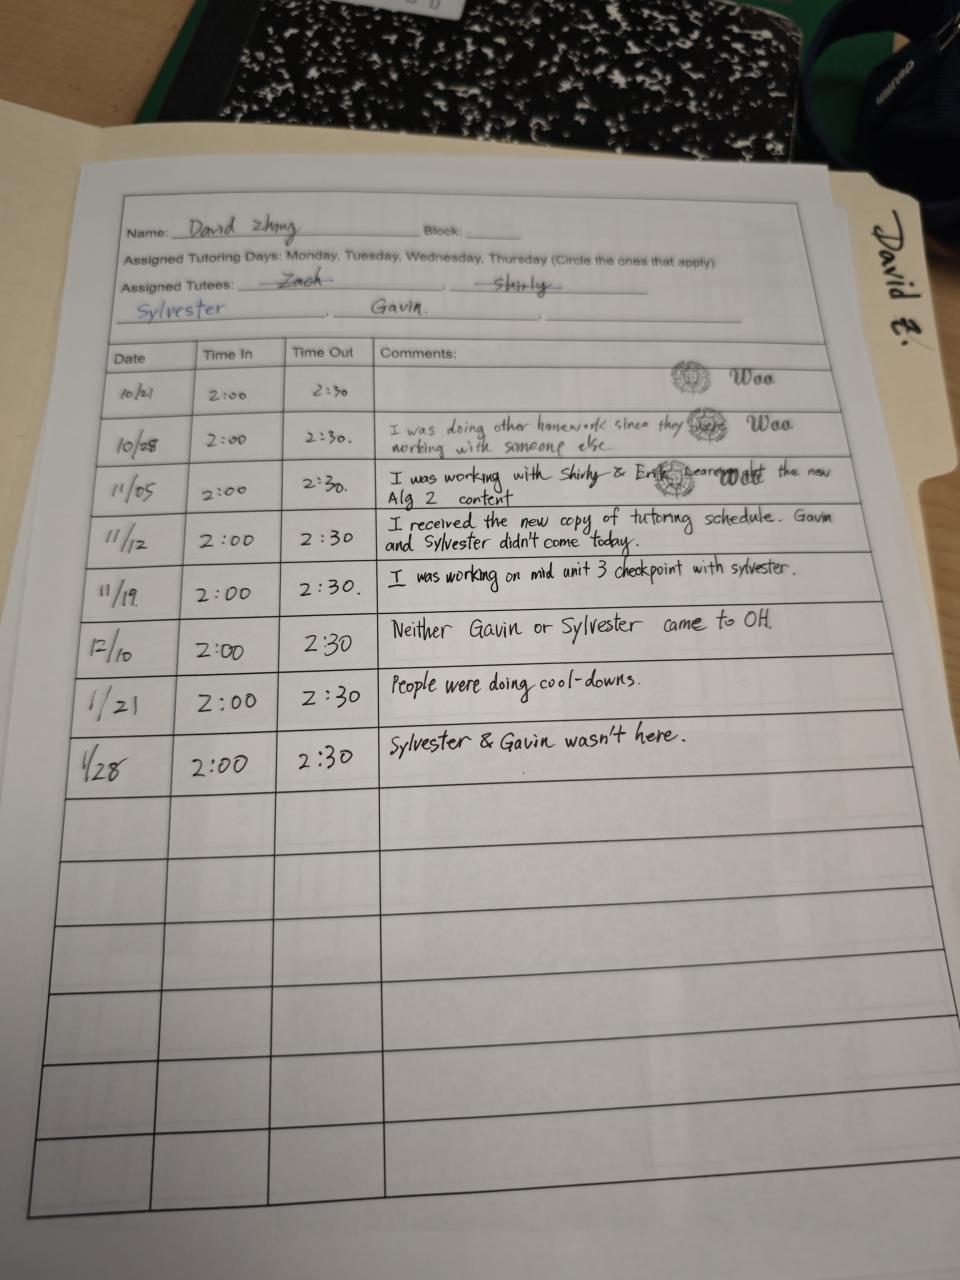 Name: David Zhang Block:
Assigned Tutoring Days: Monday, Tuesday, Wednesday, Thursday (Circle the ones that apply)
Assigned Tutees: Zach, Shirly
Sylvester, Gavin.
David Z.
Date Time In Time Out Comments:
10/21 2:00 2:30 Woo
10/28 2:00 2:30. I was doing other homework since they Woo
working with someone else
11/05 2:00 2:30. I was working with Shirly & Erik the new
Alg 2 content
11/12 2:00 2:30 I received the new copy of tutoring schedule. Gavin
and Sylvester didn't come today.
11/19 2:00 2:30. I was working on mid unit 3 checkpoint with sylvester.
12/10 2:00 2:30 Neither Gavin or Sylvester came to OH.
1/21 2:00 2:30 People were doing cool-downs.
1/28 2:00 2:30 Sylvester & Gavin wasn't here.